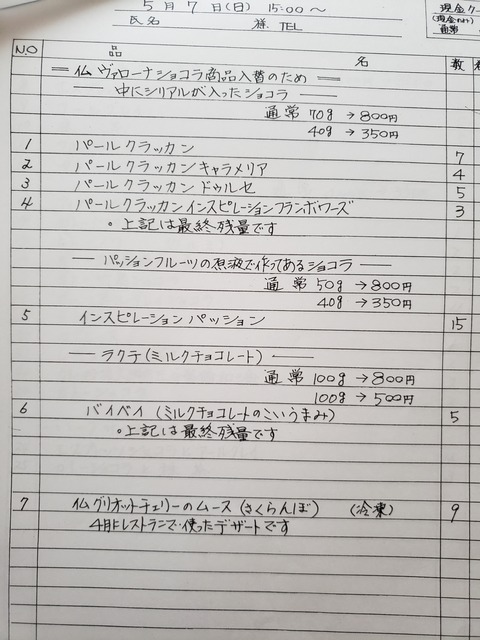 5月7日(日) 15:00～
氏名 様 TEL
現金ク
(現金のみ)
通常
NO 品名 数
＝仏 ヴァローナショコラ商品入替のため＝
── 中にシリアルが入ったショコラ ──
通常 70g → 800円
40g → 350円
1 パール クラッカン 7
2 パール クラッカン キャラメリア 4
3 パール クラッカン ドゥルセ 5
4 パール クラッカン インスピレーション フランボワーズ 3
。上記は最終残量です
── パッションフルーツの果液で作ってあるショコラ ──
通常 50g → 800円
40g → 350円
5 インスピレーション パッション 15
── ラクテ(ミルクチョコレート) ──
通常 100g → 800円
100g → 500円
6 バイベイ (ミルクチョコレートのこいうまみ) 5
。上記は最終残量です
7 仏グリオットチェリーのムース (さくらんぼ) (冷凍) 9
4月にレストランで使ったデザートです